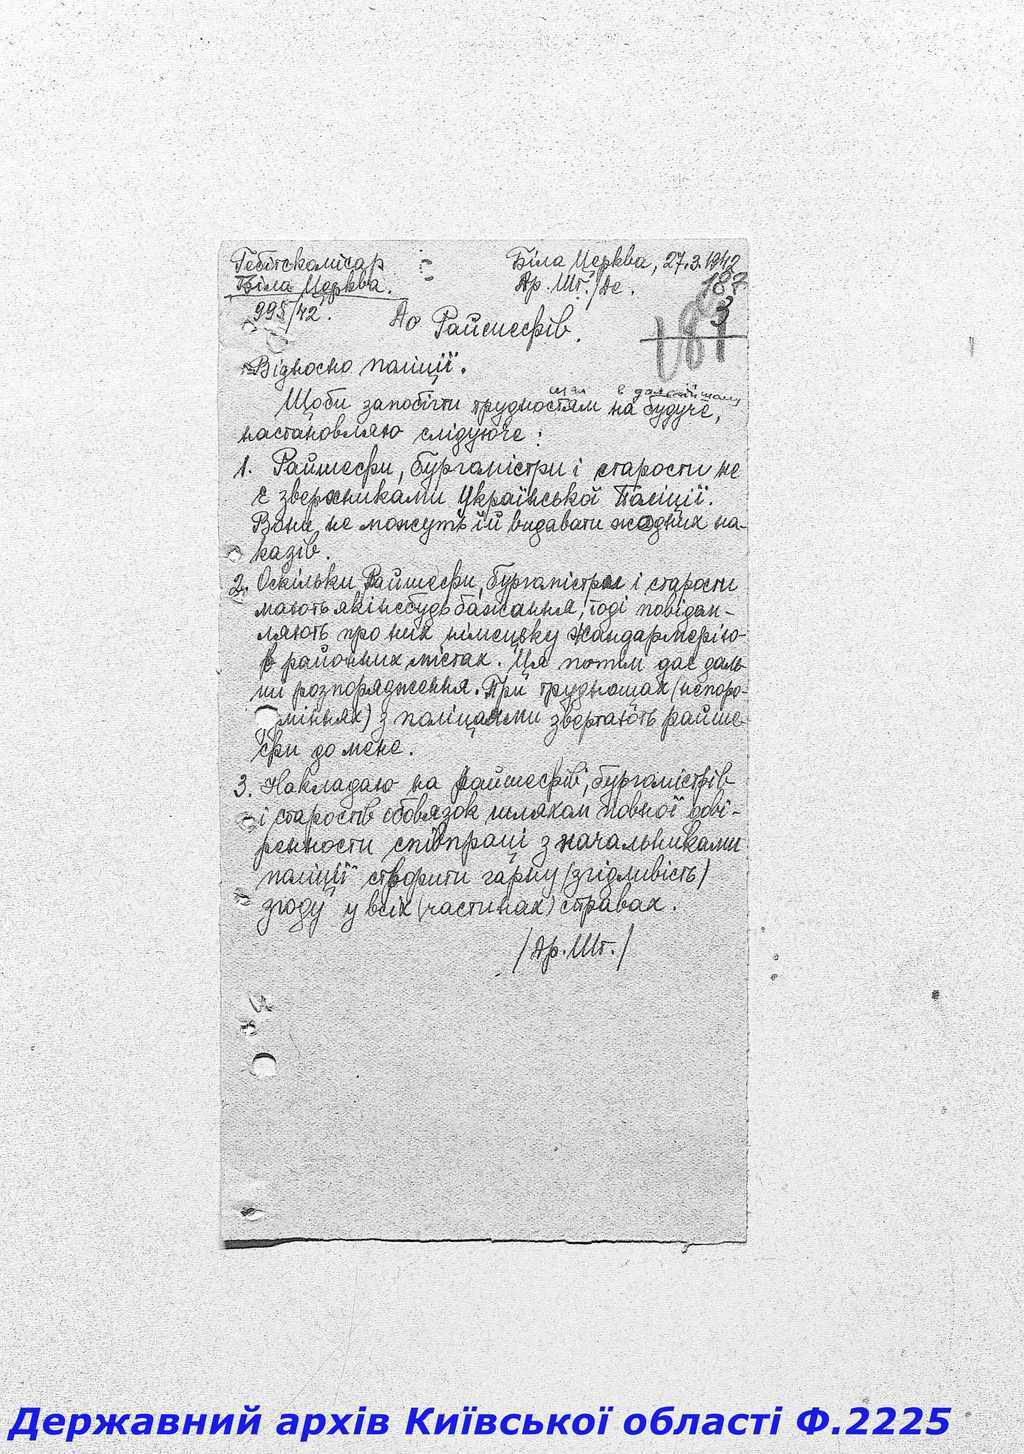 Гебітскомісар
Біла Церква, 27.3.1942
Біла Церква.
Др. Шт./Де.
187
995/42.
3
До Райшефів.
181
Відносно поліції.
в дальнійшому
Щоби запобігти трудностям на будуче,
настановляю слідуюче:
1. Райшефи, бургомістри і старости не
є зверхниками Української Поліції.
Вони не можуть їй видавати жадних на-
казів.
2. Оскільки Райшефи, бургомістри і старости
мають якінебудь бажання, тоді повідом-
ляють про них німецьку жандармерію
в районних містах. Ця потім дає даль-
ші розпорядження. При трудношах (непоро-
зміннях) з поліцаями звертають райше-
фи до мене.
3. Накладаю на райшефів, бургомістрів
і старостів обовязок шляхом повної дові-
ренности співпраці з начальниками
поліції створити гарну (згідливість)
згоду у всіх (частинах) справах.
/Др. Шт./
Державний архів Київської області Ф.2225